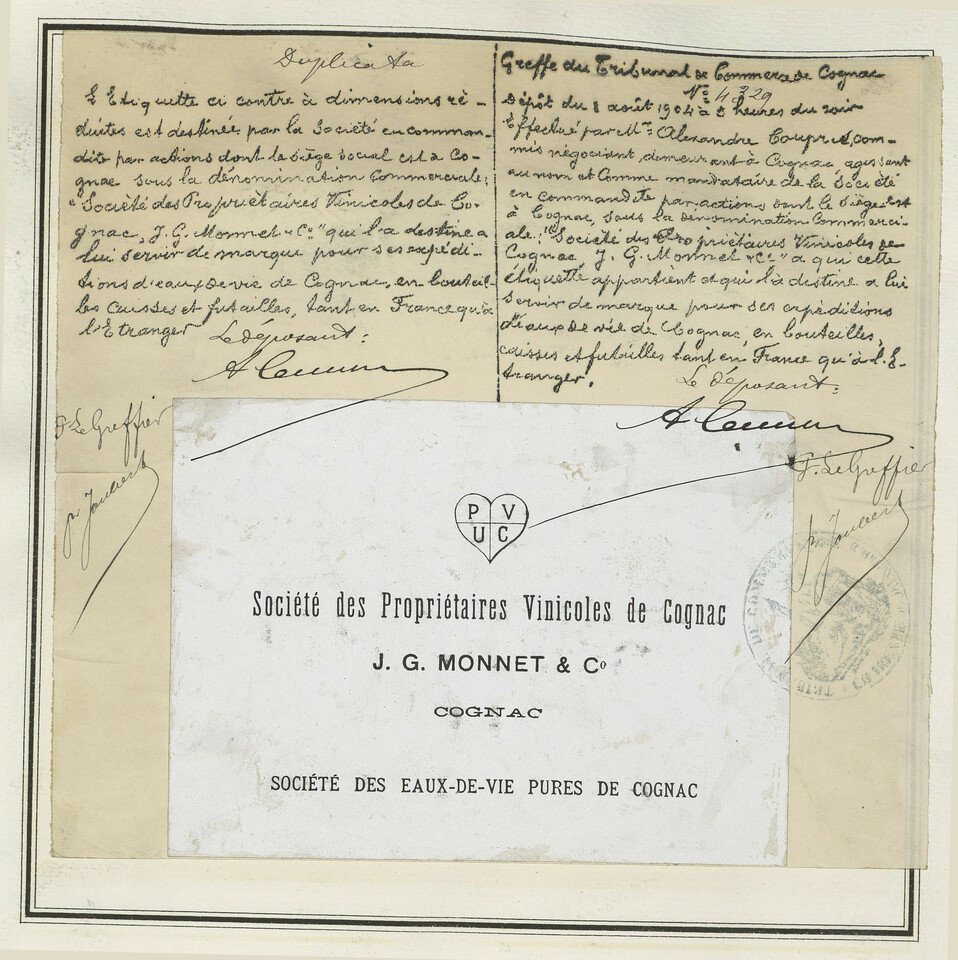 Duplicata
L'Etiquette ci contre à dimensions ré-
duites est destinée par la Société en comman-
dite par actions dont le siège social est à Co-
gnac sous la dénomination Commerciale:
"Société des Propriétaires Vinicoles de Co-
gnac, J. G. Monnet & Co" qui l'a destine a
lui servir de marque pour ses expédi-
tions d'eaux de vie de Cognac, en bouteil-
les caisses et futailles, tant en France qu'à
l'Etranger
Le déposant:
Greffe du Tribunal de Commerce de Cognac
No 4329
Dépôt du 8 août 1904 à 3 heures du soir
Effectué par Mr Alexandre Couprie, com-
mis négociant, demeurant à Cognac agissant
au nom et Comme mandataire de la Société
en commandite par actions dont le Siège est
à Cognac, sous la dénomination Commerci-
ale: "Société des Propriétaires Vinicoles de
Cognac, J. G. Monnet & Co" a qui cette
étiquette appartient et qui l'a destine a lui
servir de marque pour ses expéditions
d'eaux de vie de Cognac, en bouteilles,
caisses et futailles tant en France qu'à l'E-
tranger.
Le déposant:
P. Le Greffier
pr Joubert
P. Le Greffier
pr Joubert
P V
U C
Société des Propriétaires Vinicoles de Cognac
J. G. MONNET & Co
COGNAC
SOCIÉTÉ DES EAUX-DE-VIE PURES DE COGNAC